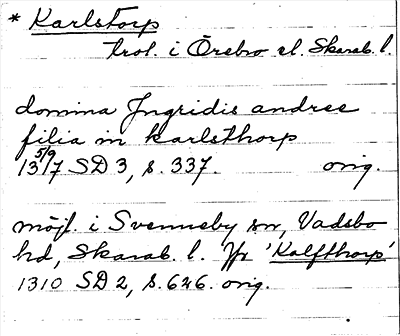 * Karlstorp
trol. i Örebro el. Skarab. l.
domina Jngridis andree
filia in karlsthorp
5/9
1317 SD 3, s. 337. orig.
möjl. i Svenneby sn, Vadsbo
hd, Skarab. l. Jfr 'Kalfthorp'
1310 SD 2, s. 626. orig.